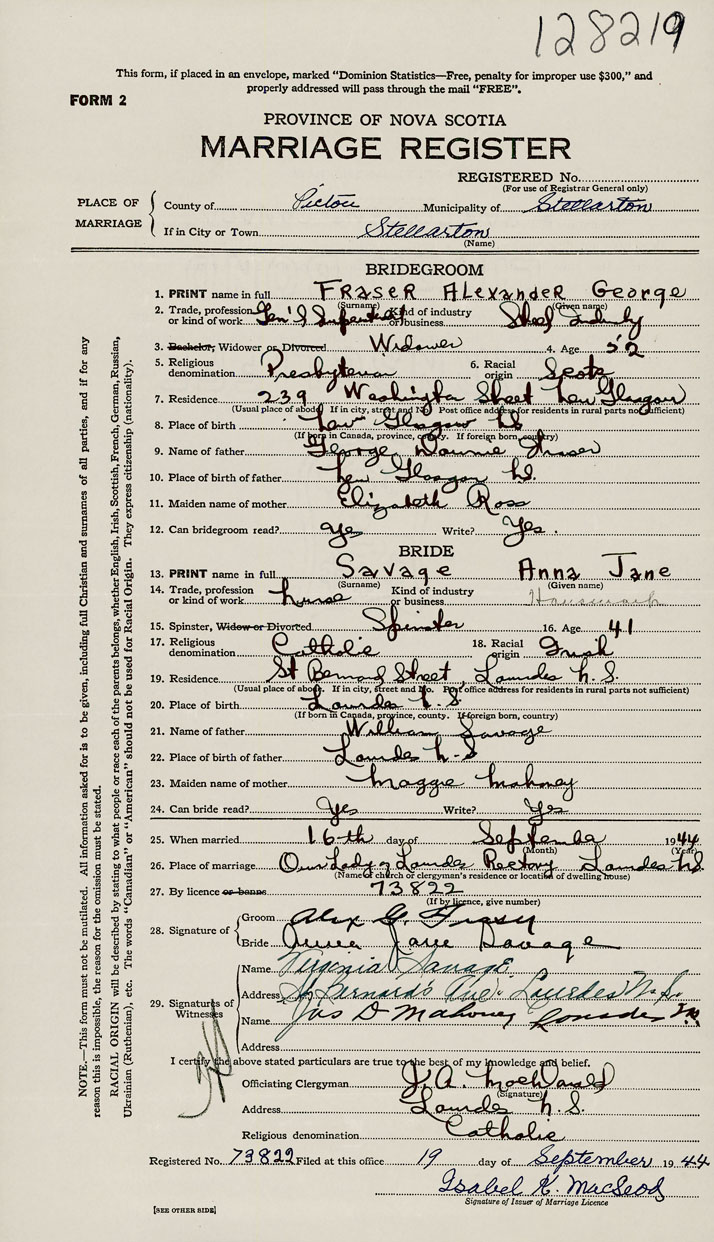 128219
This form, if placed in an envelope, marked "Dominion Statistics—Free, penalty for improper use $300," and
properly addressed will pass through the mail "FREE".
FORM 2
PROVINCE OF NOVA SCOTIA
MARRIAGE REGISTER
REGISTERED No.
(For use of Registrar General only)
PLACE OF MARRIAGE
County of Pictou Municipality of Stellarton
If in City or Town Stellarton
(Name)
BRIDEGROOM
1. PRINT name in full Fraser Alexander George
(Surname) (Given name)
2. Trade, profession or kind of work Gen'l Kind of industry or business Steel
3. Bachelor, Widower or Divorced Widower 4. Age 52
5. Religious denomination Presbyterian 6. Racial origin Scots
7. Residence 239 Washington Street New Glasgow
(Usual place of abode. If in city, street and No. Post office address for residents in rural parts not sufficient)
8. Place of birth New Glasgow NS
(If born in Canada, province, county. If foreign born, country)
9. Name of father George Fraser
10. Place of birth of father New Glasgow NS.
11. Maiden name of mother Elizabeth Ross
12. Can bridegroom read? Yes Write? Yes.
BRIDE
13. PRINT name in full Savage Anna Jane
(Surname) (Given name)
14. Trade, profession or kind of work Nurse Kind of industry or business
15. Spinster, Widow or Divorced Spinster 16. Age 41
17. Religious denomination Catholic 18. Racial origin Irish
19. Residence St Bernard Street, Lourdes N.S.
(Usual place of abode. If in city, street and No. Post office address for residents in rural parts not sufficient)
20. Place of birth Lourdes N.S
(If born in Canada, province, county. If foreign born, country)
21. Name of father William Savage
22. Place of birth of father Lourdes N.S
23. Maiden name of mother Maggie Mahoney
24. Can bride read? Yes Write? Yes
25. When married 16th day of September 1944
(Month) (Year)
26. Place of marriage Our Lady of Lourdes Rectory Lourdes NS
(Name of church or clergyman's residence or location of dwelling house)
27. By licence or banns 73822
(If by licence, give number)
28. Signature of Groom Alex G. Fraser
Bride Anna Jane Savage
29. Signatures of Witnesses
Name Virginia Savage
Address St Bernards Ave. Lourdes N.S.
Name Jas D Mahoney Lourdes N.S.
Address
I certify the above stated particulars are true to the best of my knowledge and belief.
Officiating Clergyman J. A. MacDonald
(Signature)
Address Lourdes N.S.
Religious denomination Catholic
Registered No. 73822 Filed at this office 19 day of September 1944
Isabel K. MacLeod
Signature of Issuer of Marriage Licence
[SEE OTHER SIDE]
NOTE.—This form must not be mutilated. All information asked for is to be given, including full Christian and surnames of all parties, and if for any
reason this is impossible, the reason for the omission must be stated.
RACIAL ORIGIN will be described by stating to what people or race each of the parents belongs, whether English, Irish, Scottish, French, German, Russian,
Ukrainian (Ruthenian), etc. The words "Canadian" or "American" should not be used for Racial Origin. They express citizenship (nationality).